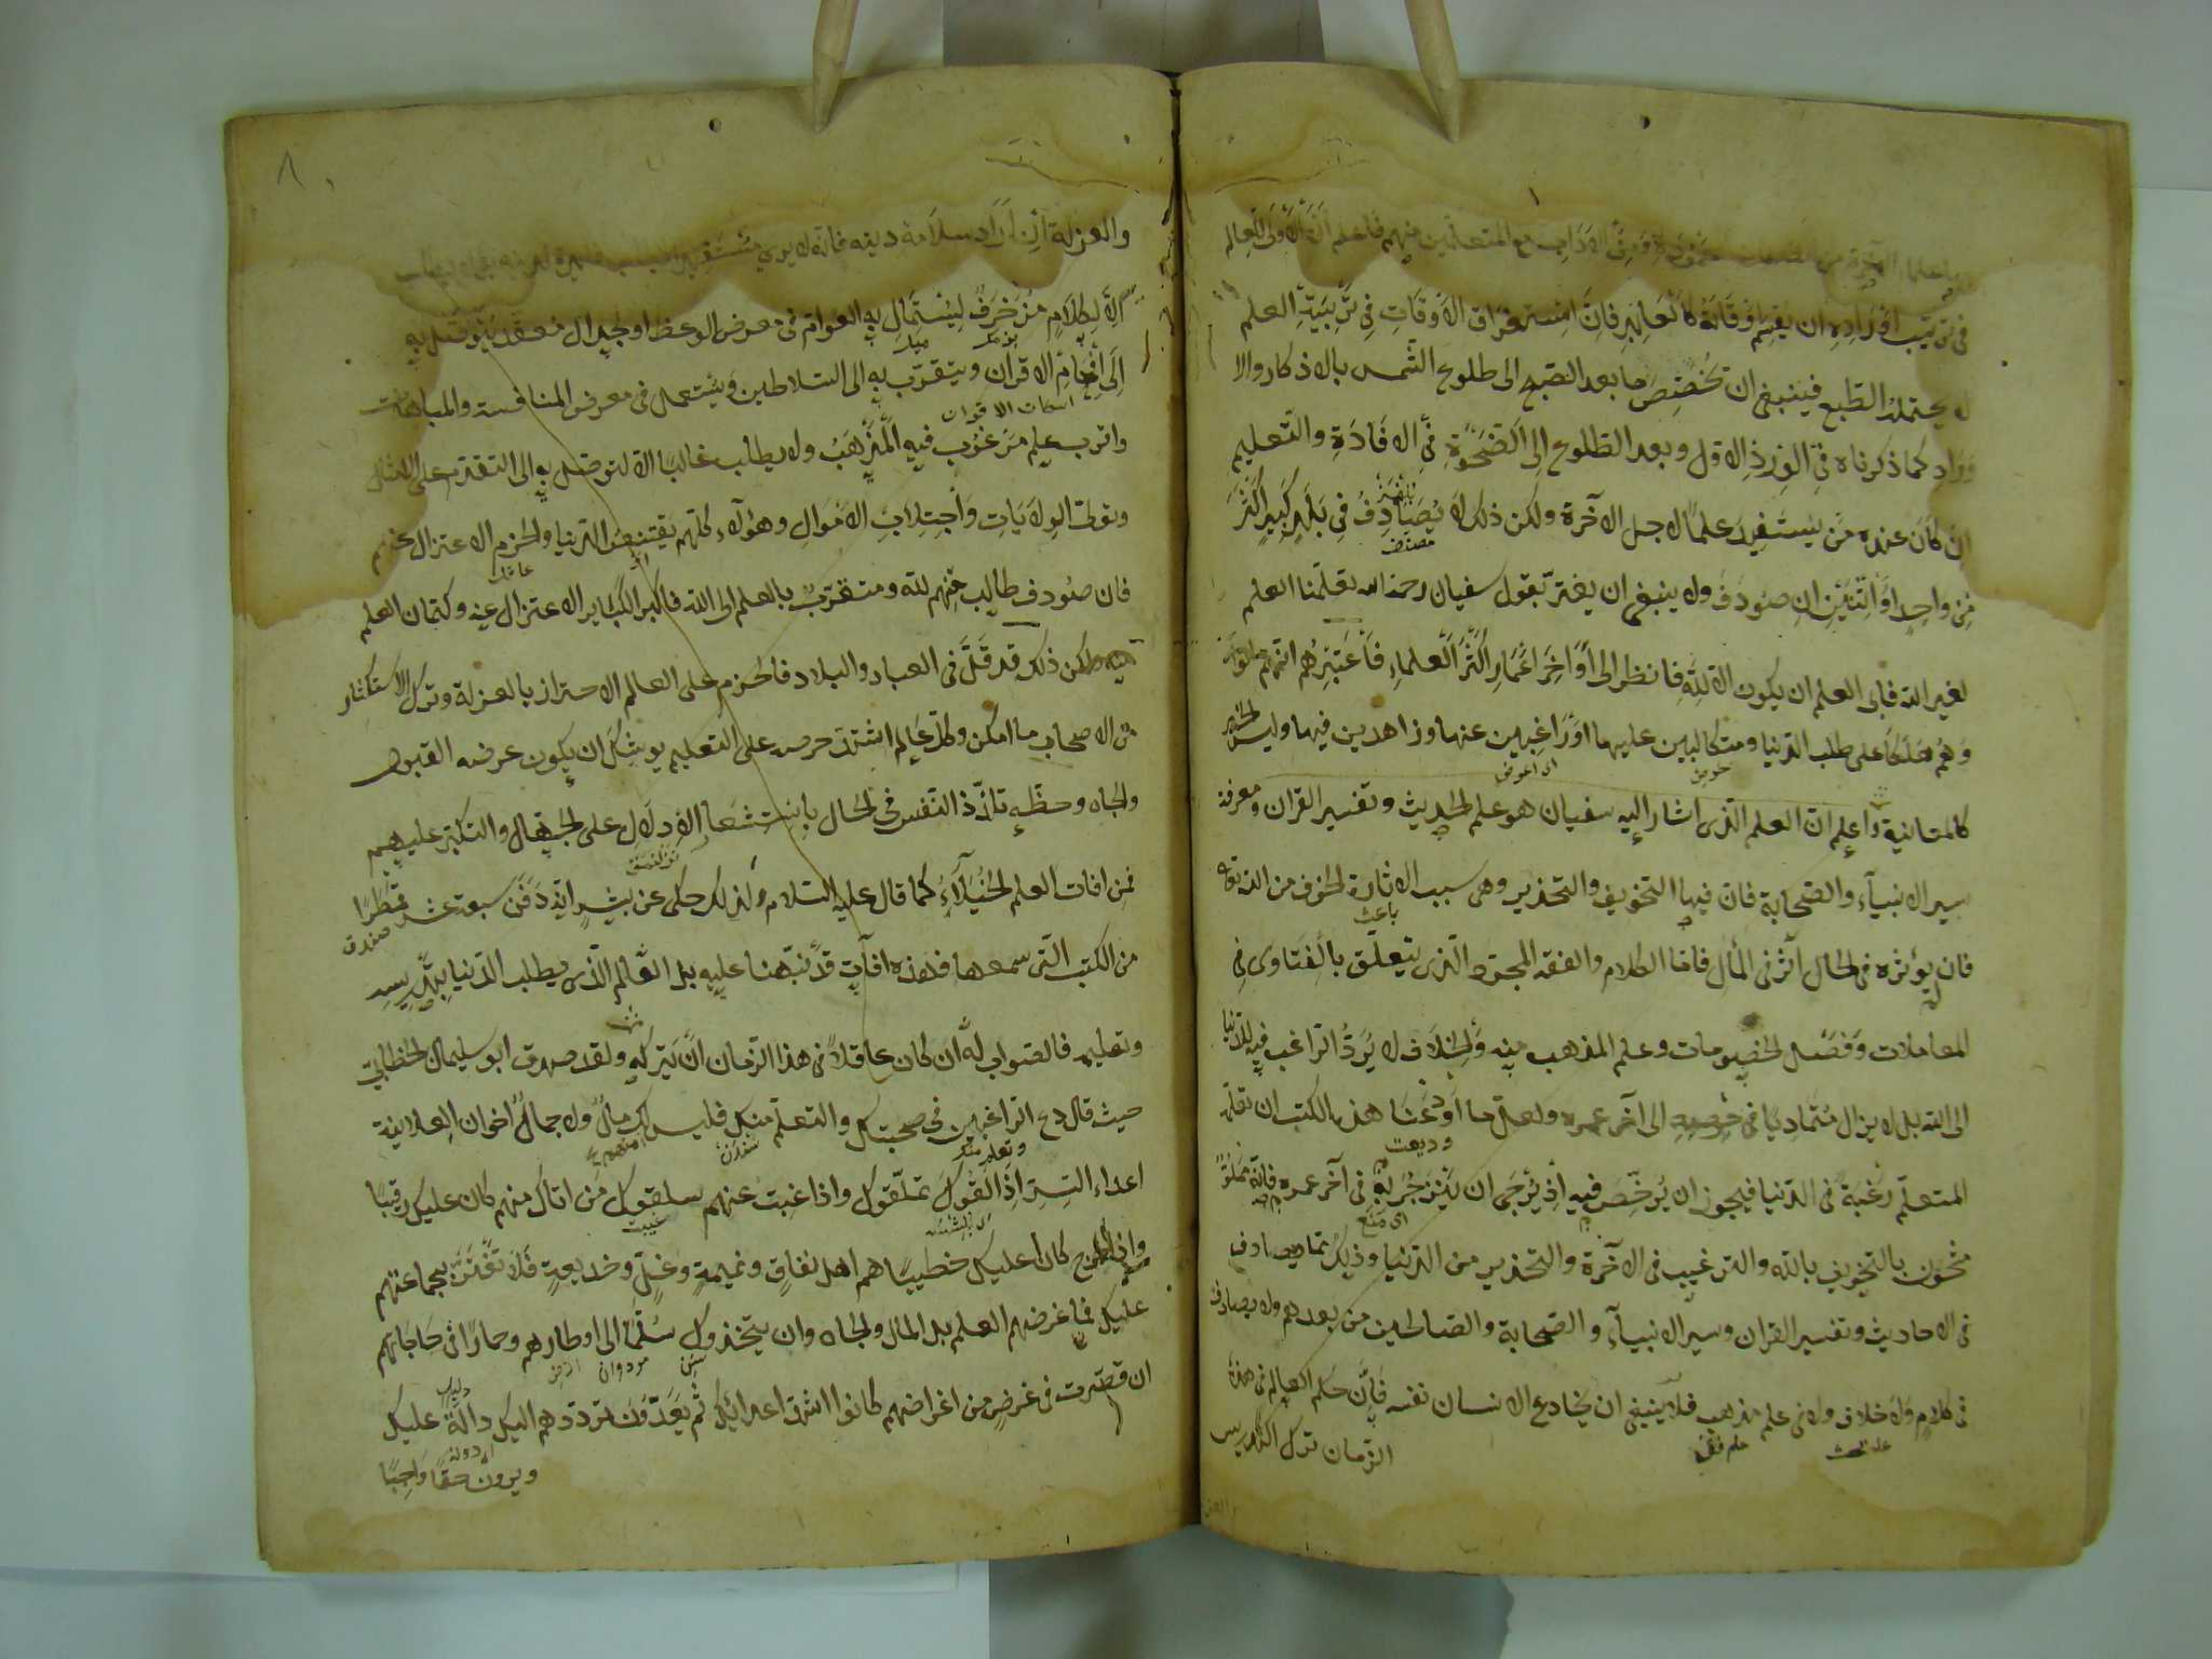 من الصفات المحمودة ومن الآداب مع المتعلمين منهم فاعلم ان الاولى للعالم
في ترتيب اوراده ان يقسم اوقاته كالعابد فان استغراق الاوقات في ترتيبه العلم
لا يحتمله الطبع فينبغي ان تخصص ما بعد الصبح الى طلوع الشمس بالاذكار والا
وراد كما ذكرناه في الورد الاول وبعد الطلوع الى الضحوة في الافادة والتعليم
ان كان عنده من يستفيد علما لاجل الآخرة ولكن ذلك لا يصادف في بلد كبير اكثر
من واحد او اثنين ان صودف ولا ينبغي ان يغتر بقول سفيان رحمه الله تعلمنا العلم
لغير الله فابى العلم ان يكون الا لله فانظر الى اواخر اعمار اكثر العلماء فاعتبرهم انهم ماتوا
وهم هلكا على طلب الدنيا ومتكالبين عليها او راغبين عنها وزاهدين فيها وليس الخبر
حريص اى اعرض
كالمعاينة واعلم ان العلم الذى اشار اليه سفيان هو علم الحديث وتفسير القران ومعرفة
سير الانبيآء والصحابة فان فيها التخويف والتحذير وهى سبب الاثارة الخوف من الله تعالى
باعث
فان لم يؤثره في الحال آثر في المآل فاما الكلام والفقه المجرد الذى يتعلق بالفتاوى في
المعاملات وفصل الخصومات وعلم المذهب منه والخلاف لا يرد الراغب فيه للدنيا
الى الله بل لا يزال متماديا في حرصه الى آخر عمره ولعل ما اودعنا هذا الكتب ان تعلمه
وديعت
المتعلم رغبة في الدنيا فيجوز ان يرخص فيه اذ يرجى ان ينزجر به في آخر عمره فانه مملو
اى منع
مشحون بالتخويف بالله والترغيب في الآخرة والتحذير من الدنيا وذلك مما يصادف
في الاحاديث وتفسير القران وسير الانبيآء والصحابة والصالحين من بعدهم ولا يصادف
في كلام ولا خلاف ولا في علم مذهب فلا ينبغي ان يخادع الانسان نفسه فإن حكم العالم في هذه
علم بحث علم فقه
الزمان ترك التدريس
٨
والعزلة ان اراد سلامة دينه فانه لا يرى مستفيدا
الا لكلام مزخرف ليستمال به العوام في معرض الوعظ او لجدال معقد يتوصل به
الى افحام الاقران ويتقرب به الى السلاطين ويستعمل في معرض المنافسة والمباهات
اسكات الاقران
واقرب علم مرغوب فيه المذهب ولا يطلب غالبا الا لتوصل به الى التقدم على الامثال
وتولى الولايات واجتلاب الاموال وهؤلآء كلهم يقتنعون الدنيا والحزم الاعتزال عنهم
فان صودف طالب منهم لله ومتقرب بالعلم الى الله فاكبر الكبائر الاعتزال عنه وكتمان العلم
منه ولكن ذلك قد قل في العباد والبلاد فالحزم على العالم الاحتراز بالعزلة وترك الاستكثار
من الاصحاب ما امكن وكل عالم اشتد حرصه على التعليم يوشك ان يكون عرضه القبول
والجاه وحظه تلذذ النفس في الحال باستشعار الادلال على الجهال والتكبر عليهم
فمن افات العلم الخيلآء كما قال عليه السلام ولذلك حكى عن بشر انه دفن سبعة عشر قمطرا
صندق
من الكتب التى سمعها فهذه افآت قد نبهنا عليه بل العالم الذى يطلب الدنيا بتدريسه
وتعليمه فالصواب له ان كان عاقلا في هذا الزمان ان يتركه ولقد صدق ابو سليمان الخطابي
حيث قال دع الراغبين في صحبتك والتعلم منك فليس لك مال ولا جمال اخوان العلانية
وتعلم منك
اعداء السر اذا لقوك تملقوك واذا غبت عنهم سلقوك من اتاك منهم كان عليك رقيبا
غيبت
واذا خرج كان عليك خطيبا هم اهل نفاق ونميمة وغل وخديعة فلا تغتر بجماعتهم
عليك فما غرضهم العلم بل المال والجاه وان يتخذوك سلما الى اوطارهم وحمارا في حاجاتهم
ان قصرت في غرض من اغراضهم كانوا اشد اعدائك ثم يعدون ترددهم اليك دالة عليك
ويرونه حقا واجبا